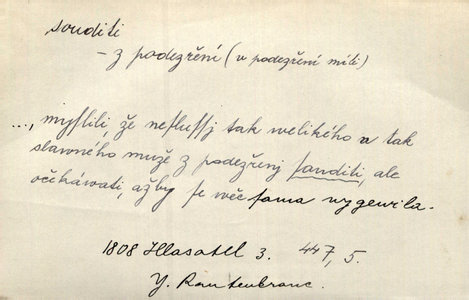 souditi
– z podezření (v podezření míti)
..., myſlili, že neſluſſj tak welikého a tak
slawného muže z podezřenj ſauditi, ale
očekáwati, ažby ſe wěc ſama wygewila.
1808 Hlasatel 3. 447, 5.
J. Rautenkranc.